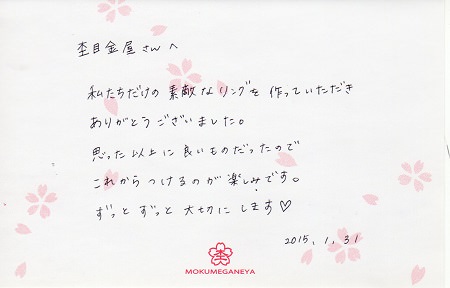 杢目金屋さんへ
私たちだけの素敵なリングを作っていただき
ありがとうございました。
思った以上に良いものだったので
これからつけるのが楽しみです。
ずっとずっと大切にします♡
2015. 1. 31
杢
MOKUMEGANEYA